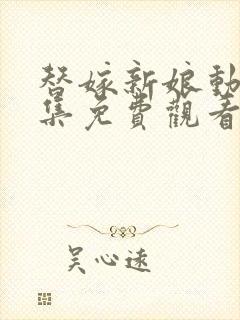 替嫁新娘動
集免費觀看
吴心遠